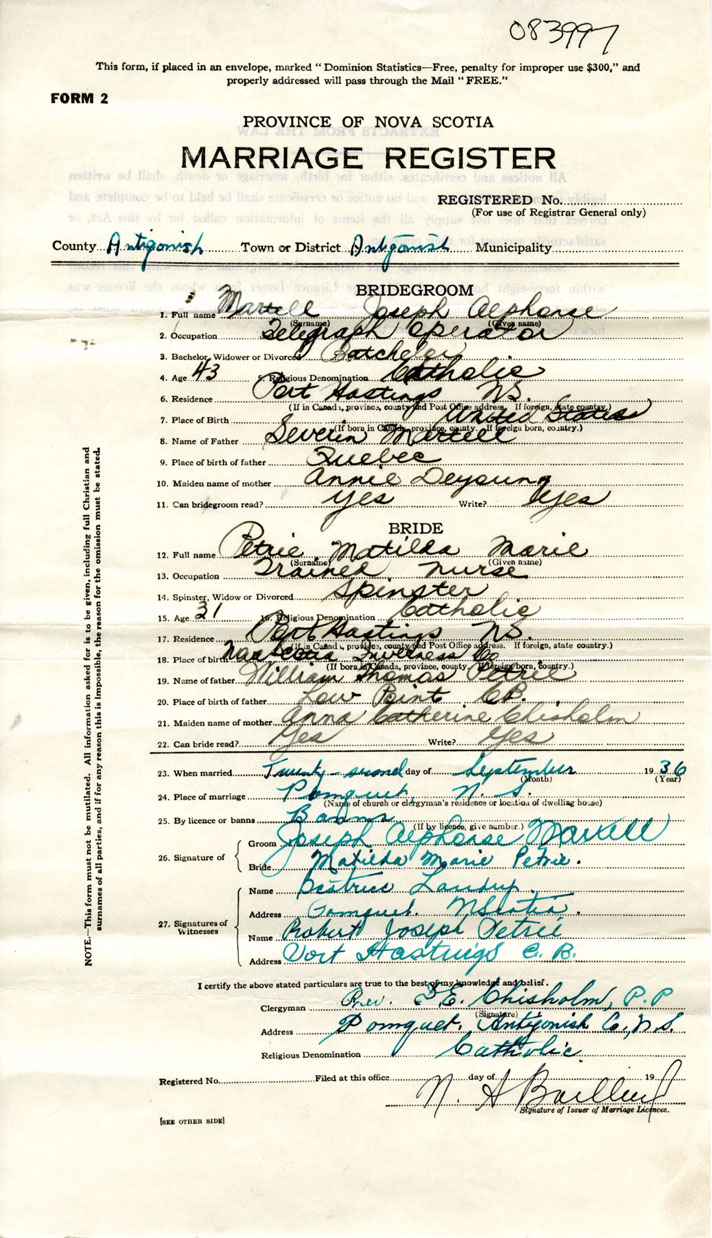 083997
This form, if placed in an envelope, marked "Dominion Statistics—Free, penalty for improper use $300," and
properly addressed will pass through the Mail "FREE."
FORM 2
PROVINCE OF NOVA SCOTIA
MARRIAGE REGISTER
REGISTERED No.
(For use of Registrar General only)
County Antigonish Town or District Antigonish Municipality
BRIDEGROOM
1. Full name Martell Joseph Alphonse
(Surname) (Given name)
2. Occupation Telegraph Operator
3. Bachelor, Widower or Divorced Batchelor
4. Age 43 5. Religious Denomination Catholic
6. Residence Port Hastings NS.
(If in Canada, province, county and Post Office address. If foreign, state country.)
7. Place of Birth United States
(If born in Canada, province, county. If foreign born, country.)
8. Name of Father Severin Martell
9. Place of birth of father Quebec
10. Maiden name of mother Annie Deyoung
11. Can bridegroom read? Yes Write? Yes
BRIDE
12. Full name Petrie Matilda Marie
(Surname) (Given name)
13. Occupation Trained Nurse
14. Spinster, Widow or Divorced Spinster
15. Age 31 16. Religious Denomination Catholic
17. Residence Port Hastings NS.
(If in Canada, province, county and Post Office address. If foreign, state country.)
18. Place of birth Nova Scotia Inverness Co
(If born in Canada, province, county. If foreign born, country.)
19. Name of father William Thomas Petrie
20. Place of birth of father Low Point C.B.
21. Maiden name of mother Anna Catherine Chisholm
22. Can bride read? Yes Write? Yes
23. When married Twenty-second day of September 1936
(Month) (Year)
24. Place of marriage Pomquet, N.S.
(Name of church or clergyman's residence or location of dwelling house)
25. By licence or banns Banns
(If by licence, give number.)
26. Signature of Groom Joseph Alphonse Martell
Bride Matilda Marie Petrie.
27. Signatures of Witnesses
Name Beatrice Landry.
Address Pomquet. N Scotia.
Name Robert Joseph Petrie
Address Port Hastings C. B.
I certify the above stated particulars are true to the best of my knowledge and belief.
Clergyman Rev. E. Chisholm, P.P
(Signature)
Address Pomquet, Antigonish Co., N.S.
Religious Denomination Catholic
Registered No. Filed at this office day of 19
N. A
Signature of Issuer of Marriage Licences.
[SEE OTHER SIDE]
NOTE.—This form must not be mutilated. All information asked for is to be given, including full Christian and
surnames of all parties, and if for any reason this is impossible, the reason for the omission must be stated.